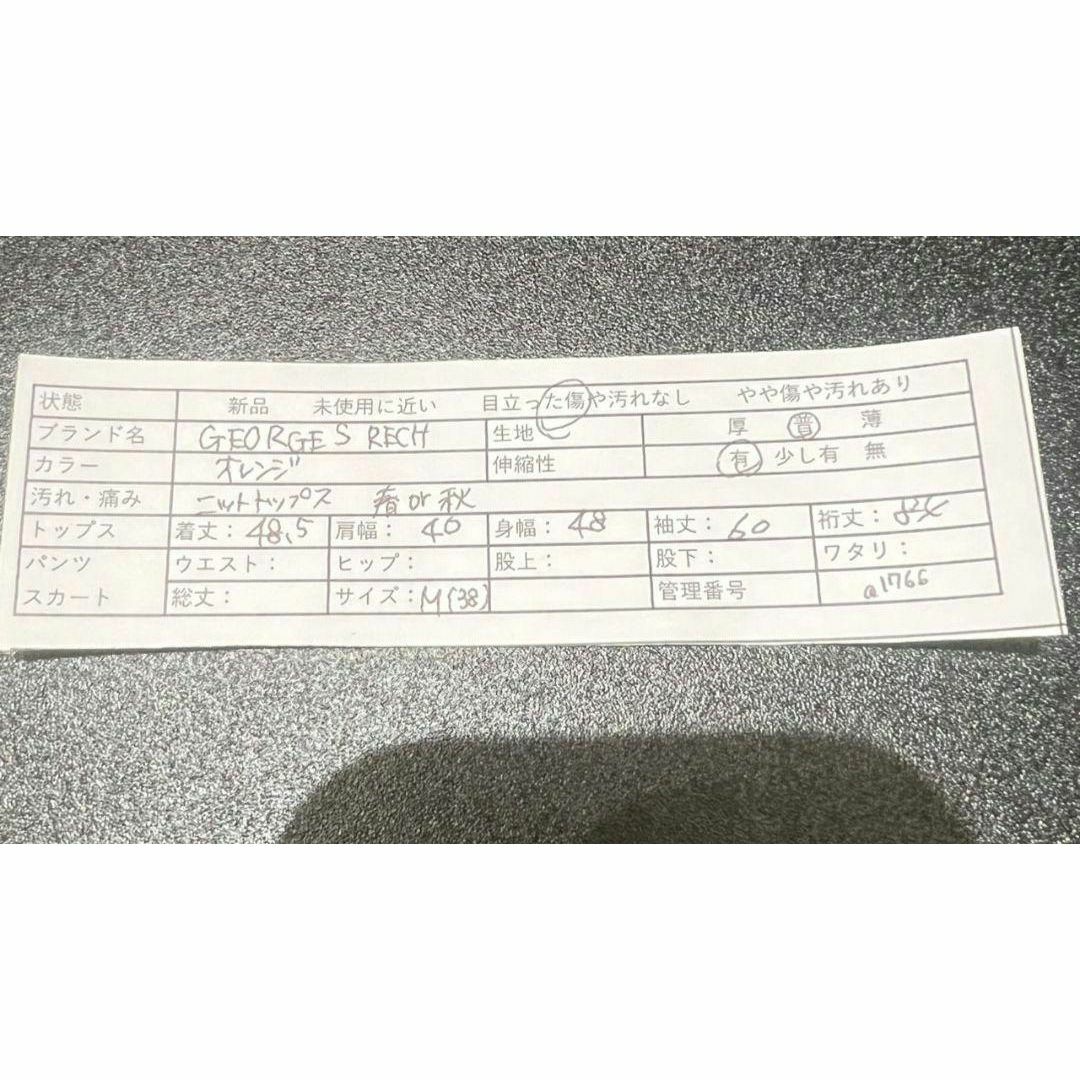 状態 新品 未使用に近い 目立った傷や汚れなし やや傷や汚れあり
ブランド名 GEORGES RECH 生地 厚 普 薄
カラー オレンジ 伸縮性 有 少し有 無
汚れ・痛み ニットトップス 春or秋
トップス 着丈：48.5 肩幅：40 身幅：48 袖丈：60 裄丈：
パンツ ウエスト： ヒップ： 股上： 股下： ワタリ：
スカート 総丈： サイズ：M(38) 管理番号 a1766